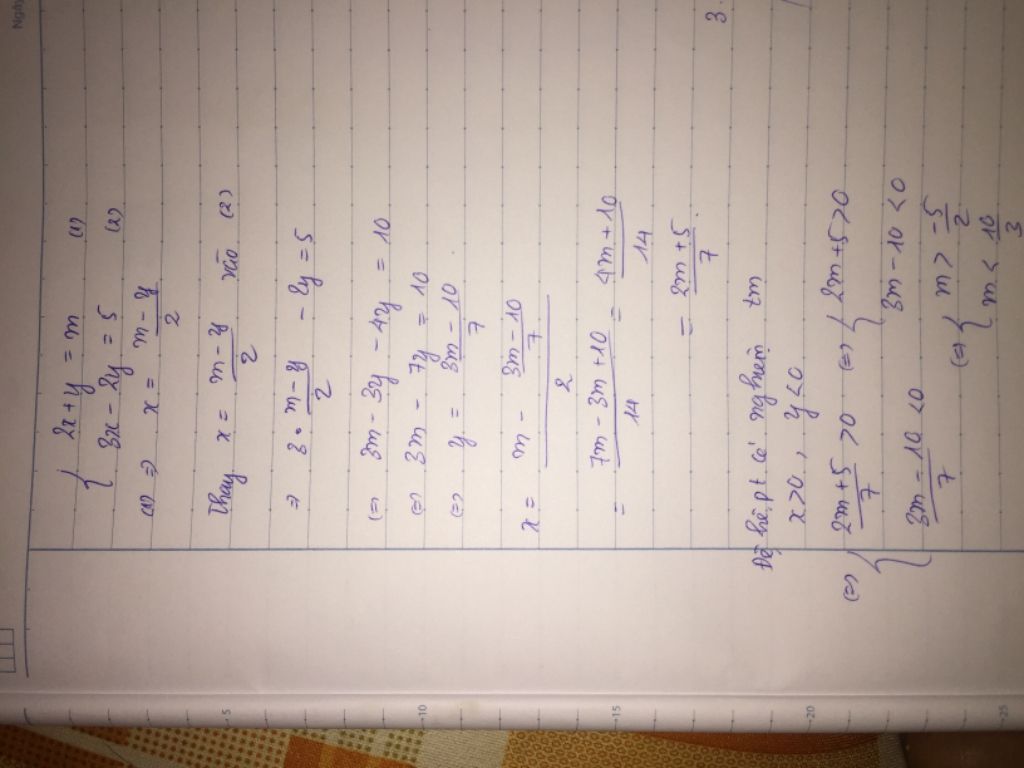 Ngày
{ 2x + y = m (1)
3x - 2y = 5 (2)
(1) => x = \frac{m - y}{2}
Thay x = \frac{m - y}{2} vào (2)
=> 3 \cdot \frac{m - y}{2} - 2y = 5
(=) 3m - 3y - 4y = 10
(=) 3m - 7y = 10
(=) y = \frac{3m - 10}{7}
x = \frac{m - \frac{3m - 10}{7}}{2}
= \frac{7m - 3m + 10}{14} = \frac{4m + 10}{14}
= \frac{2m + 5}{7}.
Để hệ pt có nghiệm tm
x > 0, y < 0
(=) { \frac{2m + 5}{7} > 0 (=) { 2m + 5 > 0
\frac{3m - 10}{7} < 0 3m - 10 < 0
(=) { m > \frac{-5}{2}
m < \frac{10}{3}
3.
5
10
15
20
25